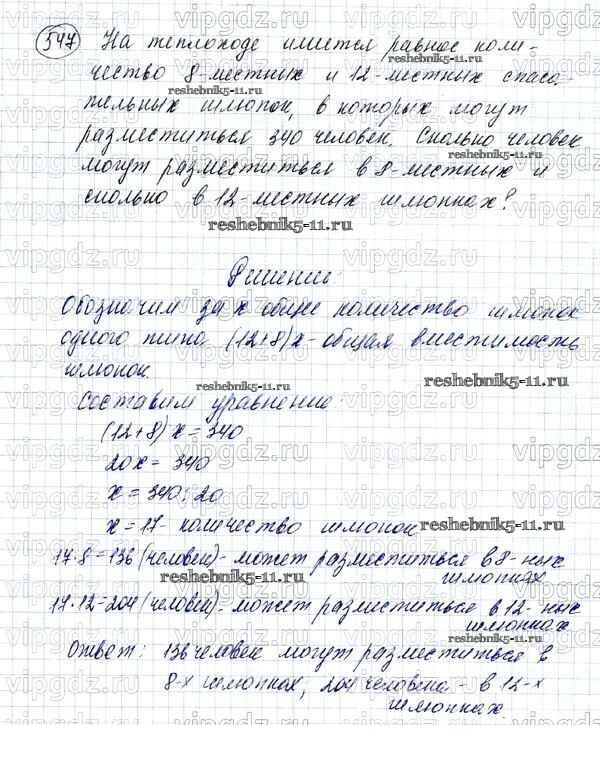 547 На теплоходе имеется равное коли-
чество 8-местных и 12-местных спаса-
тельных шлюпок, в которых могут
разместиться 340 человек. Сколько человек
могут разместиться в 8-местных и
сколько в 12-местных шлюпках?
reshebnik5-11.ru
Решение:
Обозначим за x общее количество шлюпок
одного типа. (12+8)x - общая вместимость
шлюпок.
Составим уравнение:
(12+8)x = 340
20x = 340
x = 340:20
x = 17 - количество шлюпок
17·8=136 (человек) - может разместиться в 8-ных
шлюпках
17·12=204 (человек) - может разместиться в 12-ных
шлюпках
Ответ: 136 человек могут разместиться в
8-х шлюпках, 204 человека - в 12-х
шлюпках.